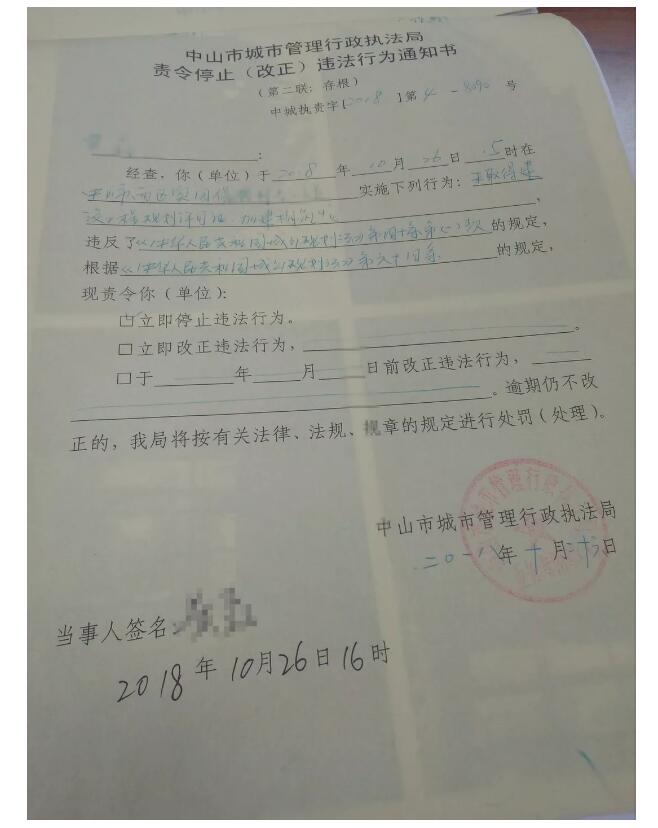 中山市城市管理行政执法局
责令停止（改正）违法行为通知书
（第二联：存根）
中城执责字[2018]第4-8090号
：
经查，你（单位）于2018年10月26日15时在
实施下列行为：未取得建
设工程规划许可证，加建构筑物，
违反了《中华人民共和国城乡规划法》第四十条第(一)款的规定，
根据《中华人民共和国城乡规划法》第六十四条的规定，
现责令你（单位）：
☑立即停止违法行为。
□立即改正违法行为，。
□于 年 月 日前改正违法行为，
。逾期仍不改
正的，我局将按有关法律、法规、规章的规定进行处罚（处理）。
中山市城市管理行政执法局
二〇一八年十月二十六日
当事人签名：
2018年10月26日16时